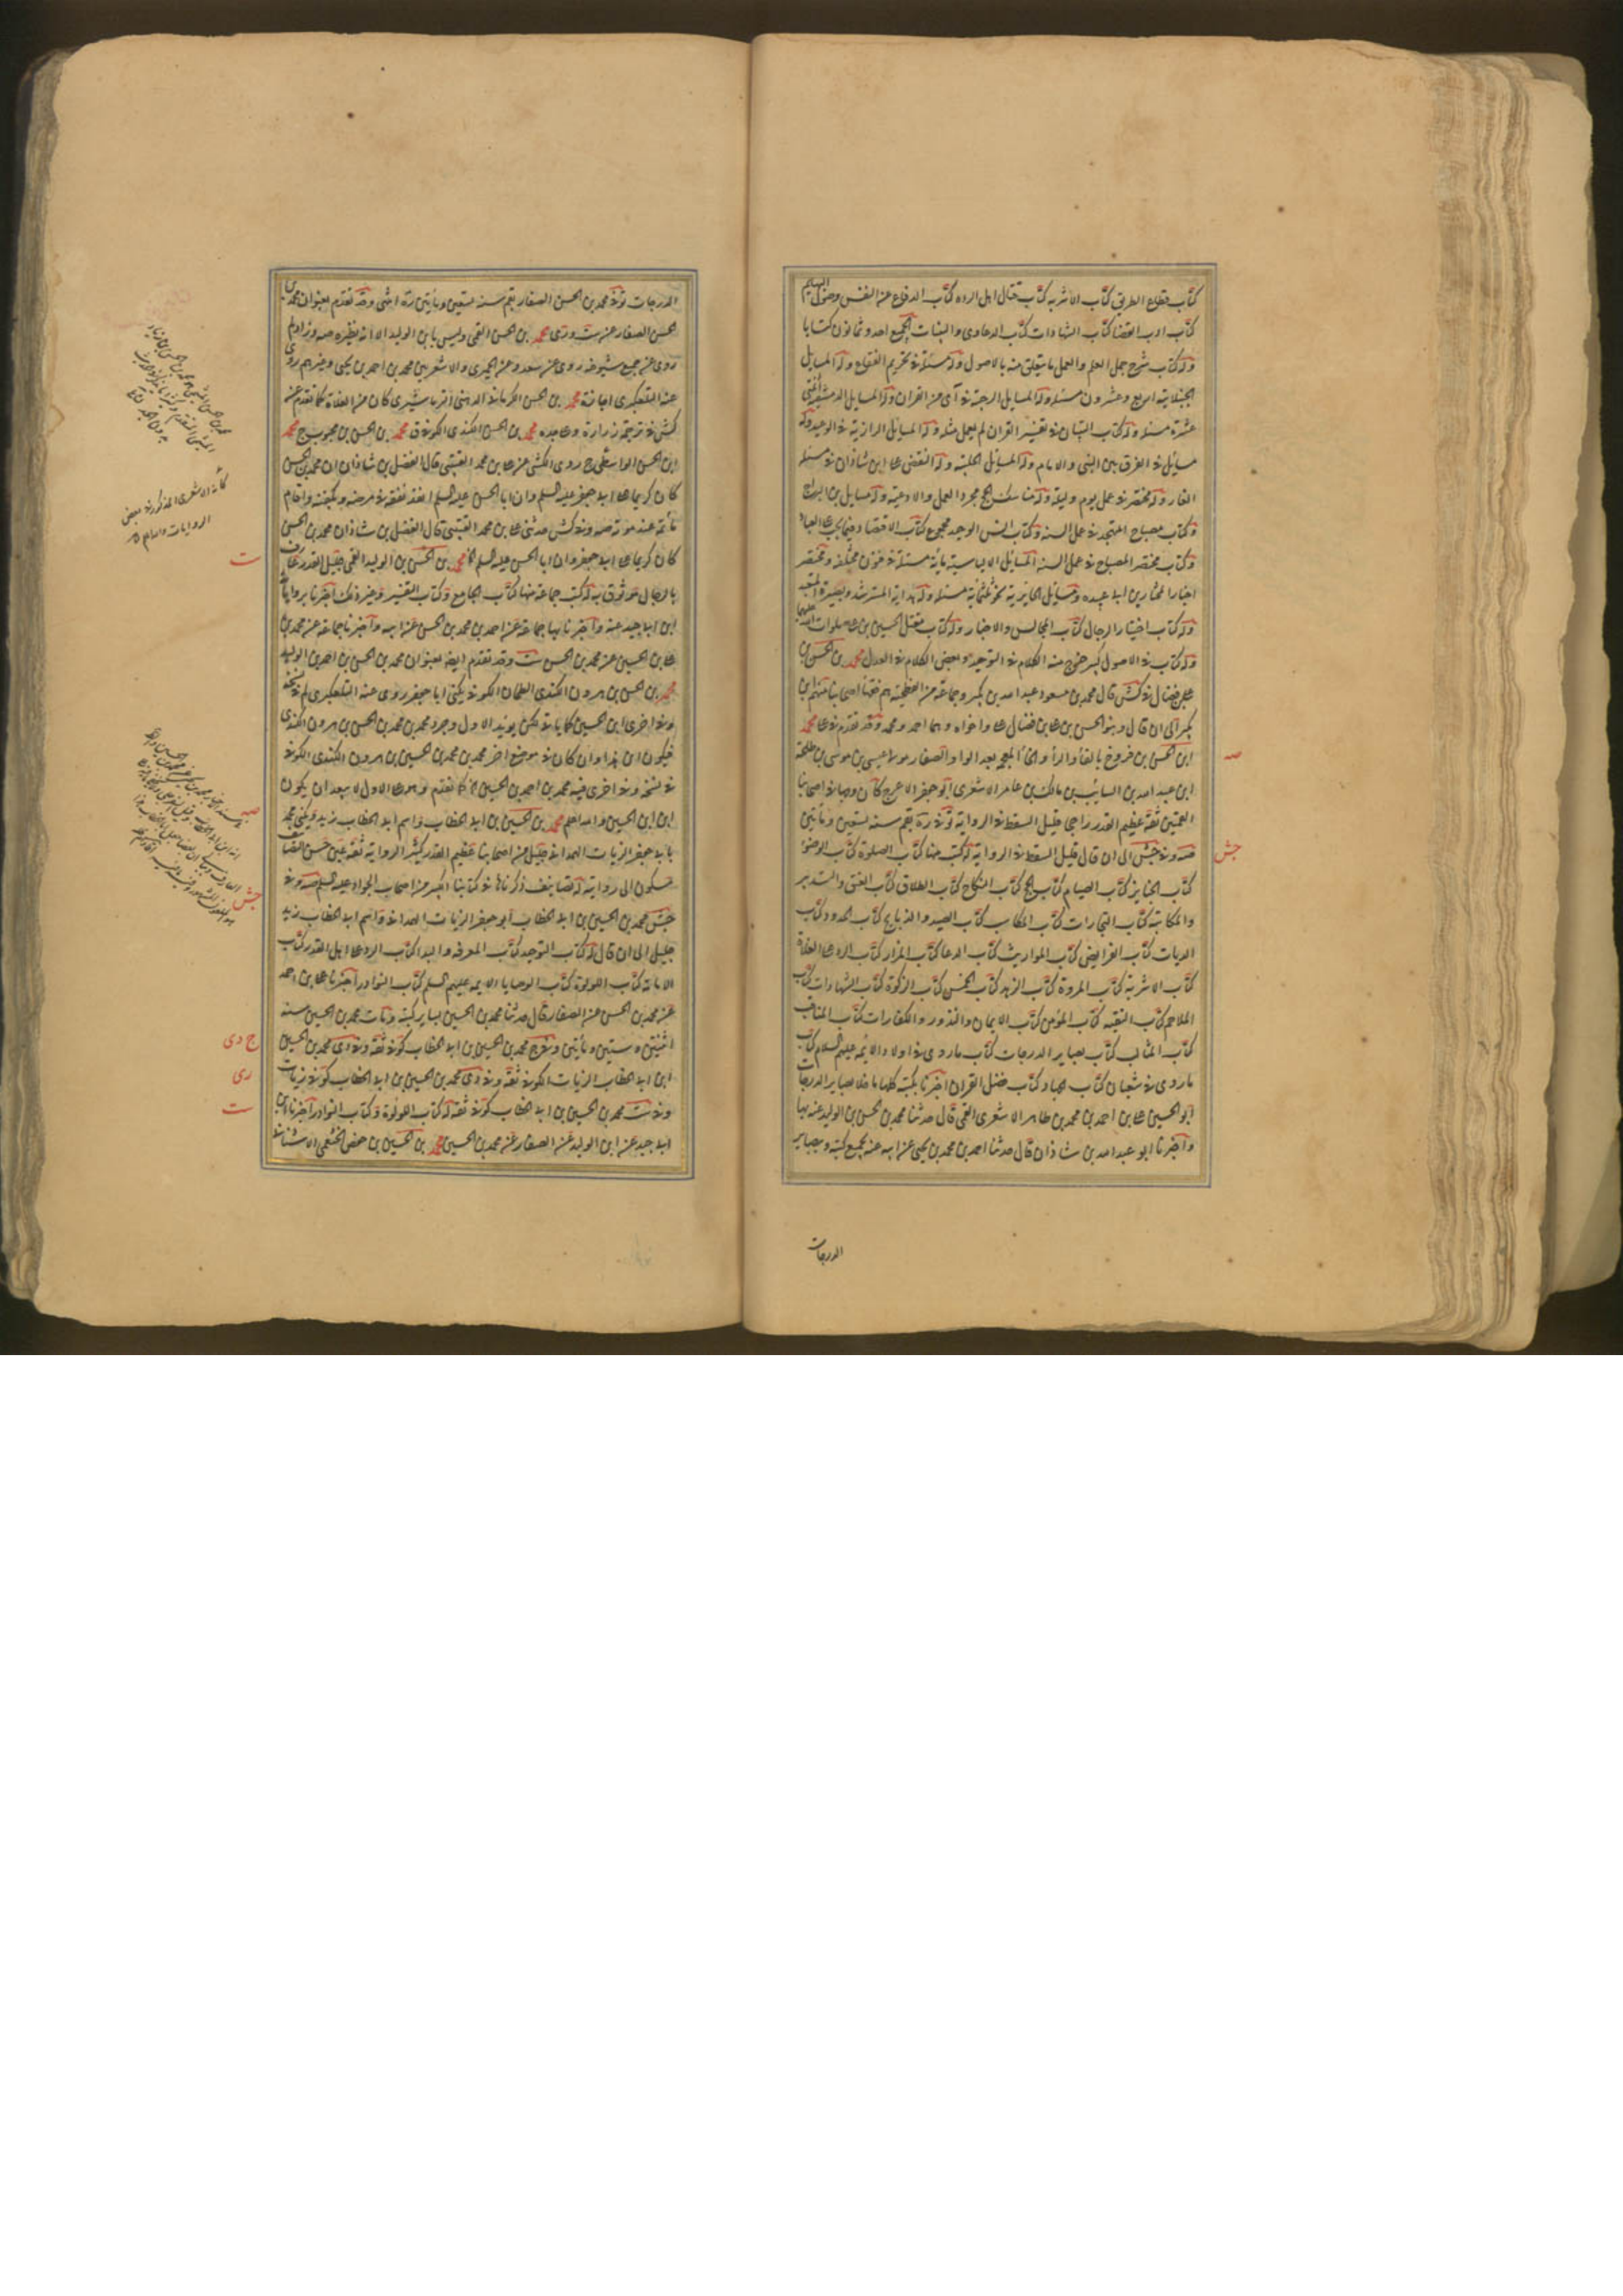 كتاب قطاع الطريق كتاب الاشربه كتاب قتال اهل الرده كتاب الدفاع عن النفس وصول البهايم
كتاب ادب القضا كتاب الشهادات كتاب الدعاوى والبينات الجميع احد وثمانون كتابا
وله كتاب شرح جمل العلم والعمل ما يتعلق منه بالاصول وله مسئلة في تحريم الفقاع وله المسايل
الجنبلائية اربع وعشرون مسئله وله المسايل الرجبة في آى من القران وله المسايل الدمشقية اثنتى
عشرة مسئله وله كتاب التبيان في تفسير القران لم يعمل مثله وله المسايل الرازية في الوعيد وله
مسايل في الفرق بين النبى والامام وله المسايل الحلبية وله النقض على ابن شاذان في مسئله
الغار وله مختصر في عمل يوم وليلة وله مناسك الحج مجرد العمل والادعية وله مسايل ابن البراج
وكتاب مصباح المتهجد في عمل السنه وكتاب انس الوحيد مجموع كتاب الاقتصاد فيما يجب على العباد
وكتاب مختصر المصباح في عمل السنه المسايل الالياسية ماية مسئلة في فنون مختلفة ومختصر
اخبار المختار بن ابى عبيده ومسايل الحايرية نحو ثلثماية مسئله وله هداية المسترشد وبصيرة المتعبد
وله كتاب اختيار الرجال كتاب المجالس والاخبار وله كتاب مقتل الحسين بن على صلوات الله عليهما
وله كتاب في الاصول كبير خرج منه الكلام في التوحيد وبعض الكلام في العدل محمد بن الحسن بن
على بن فضال في كش قال محمد بن مسعود عبد الله بن بكير وجماعة من الفطحية هم فقهاء اصحابنا منهم ابن
بكير الى ان قال وبنو الحسن بن على بن فضال على واخواه وهما احمد ومحمد وقد تقدم في على محمد
ابن الحسن بن فروخ بالفاء والراء والخاء المعجمه بعد الواو الصفار مولى عيسى بن موسى بن طلحة
ابن عبيد الله بن السايب بن مالك بن عامر الاشعرى ابو جعفر الاعرج كان وجها في اصحابنا
القميين ثقة عظيم القدر راجحا قليل السقط في الرواية توفى ره بقم سنه تسعين ومأتين
صه وفي جش الى ان قال قليل السقط في الرواية له كتب منها كتاب الصلوة كتاب الوضوء
كتاب الجنايز كتاب الصيام كتاب الحج كتاب النكاح كتاب الطلاق كتاب العتق والتدبير
والمكاتبه كتاب التجارات كتاب المكاسب كتاب الصيد والذبايح كتاب الحدود كتاب
الديات كتاب الفرايض كتاب المواريث كتاب الدعا كتاب المزار كتاب الرد على الغلاة
كتاب الاشربه كتاب المروة كتاب الزهد كتاب الخمس كتاب الزكوة كتاب الشهادات كتاب
الملاحم كتاب التقيه كتاب المؤمن كتاب الايمان والنذور والكفارات كتاب المناقب
كتاب المثالب كتاب بصاير الدرجات كتاب ماروى في اولاد الائمه عليهم السلام كتاب
ماروى في شعبان كتاب الجهاد كتاب فضل القران اخبرنا بكتبه كلها ما خلا بصاير الدرجات
ابو الحسين على بن احمد بن محمد بن طاهر الاشعرى القمى قال حدثنا محمد بن الحسن بن الوليد عنه بها
واخبرنا ابو عبد الله بن شاذان قال حدثنا احمد بن محمد بن يحيى عن ابيه عنه بجميع كتبه وببصاير
صه
جش
الدرجات
الدرجات توفى محمد بن الحسن الصفار بقم سنه تسعين ومأتين ره انتهى وقد تقدم بعنوان محمد بن
الحسن الصفار عن ست ورى محمد بن الحسن القمى وليس بابن الوليد الا انه نظيره صه وزاد لم
روى عن جميع شيوخه روى عن سعد وعن الحميرى والاشعريين محمد بن احمد بن يحيى وغيرهم روى
عنه التلعكبرى اجازة محمد بن الحسن الكرمانى الدهنى نرماشيرى كان من الغلاة كما تقدم عن
كش في ترجمة زرارة وجده محمد بن الحسن الكندى الكوفى ق محمد بن الحسن بن محبوب ج محمد
ابن الحسن الواسطى ج روى الكشى عن على بن محمد القتيبى قال الفضل بن شاذان ان محمد بن الحسن
كان كريما على ابى جعفر عليه السلم وان ابا الحسن عليه السلم انفذ نفقة في مرضه وكفنه واقام
مأتمه عند موته صه وفي كش حدثنى على بن محمد القتيبى قال الفضل بن شاذان محمد بن الحسن
كان كريما على ابى جعفر وان ابا الحسن عليه السلم محمد بن الحسن بن الوليد القمى جليل القدر عارف
بالرجال موثوق به له كتب جماعة منها كتاب الجامع وكتاب التفسير وغير ذلك اخبرنا برواياته
ابن ابى جيد عنه واخبرنا بها جماعة عن احمد بن محمد بن الحسن عن ابيه واخبرنا جماعة عن محمد بن
على بن الحسين عن محمد بن الحسن ست وقد تقدم ايضه بعنوان محمد بن الحسن بن احمد بن الوليد
محمد بن الحسن بن هرون الكندى الطحان الكوفى يكنى ابا جعفر روى عنه التلعكبرى لم في نسخة
وفي اخرى ابن الحسين كما ياتى لكن يؤيد الاول وجود محمد بن محمد بن الحسن بن هرون الكندى
فيكون ابن هذا وان كان في موضع اخر محمد بن محمد بن الحسين بن هرون الكندى الكوفى
في نسخة وفي اخرى فيه محمد بن احمد بن الحسين كما تقدم وهو على الاول لا يبعد ان يكون
ابن ابن الحسين والله اعلم محمد بن الحسين بن ابى الخطاب واسم ابى الخطاب زيد ويكنى محمد
بابى جعفر الزيات الهمدانى جليل من اصحابنا عظيم القدر كثير الرواية ثقة عين حسن التصانيف
مسكون الى روايته له تصانيف ذكرناها في كتابنا الكبير من اصحاب الجواد عليه السلم صه وفي
جش محمد بن الحسين بن ابى الخطاب ابو جعفر الزيات الهمدانى واسم ابى الخطاب زيد
جليل الى ان قال له كتاب التوحيد كتاب المعرفه والبدا كتاب الرد على اهل القدر كتاب
الامامة كتاب اللولوة كتاب الوصايا الايمه عليهم السلم كتاب النوادر اخبرنا على بن احمد
عن محمد بن الحسن عن الصفار قال حدثنا محمد بن الحسين بساير كتبه ومات محمد بن الحسين سنه
اثنتين وستين ومأتين وفي ج محمد بن الحسين بن ابى الخطاب كوفى ثقة وفي دى محمد بن الحسين
ابن ابى الخطاب الزيات الكوفى ثقة وفي رى محمد بن الحسين بن ابى الخطاب كوفى زيات
وفي ست محمد بن الحسين بن ابى الخطاب كوفى ثقة له كتاب اللولوة وكتاب النوادر اخبرنا ابن
ابى جيد عن ابن الوليد عن الصفار عن محمد بن الحسين محمد بن الحسين بن حفص الخثعمى الاشنانى
كأنه الاشعرى المذكور في بعض
الروايات والله اعلم
ت
صه
جش
ج دى
رى
ست